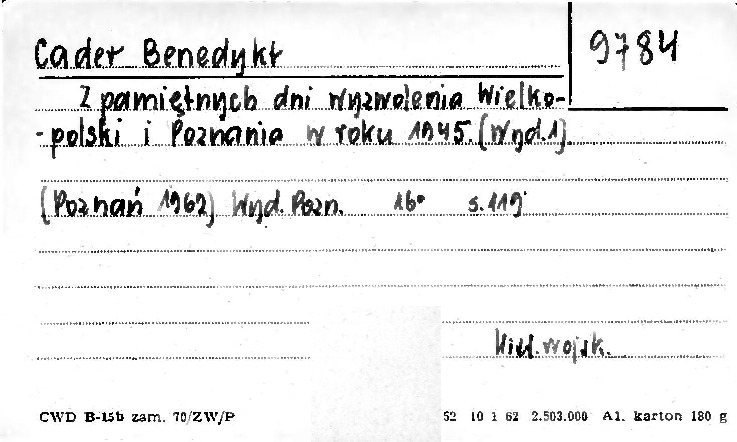 Cader Benedykt
9784
Z pamiętnych dni wyzwolenia Wielko-
-polski i Poznania w roku 1945. [Wyd. 1].
[Poznań 1962] Wyd. Pozn. 16° s. 119
Hist. wojsk.
CWD B-15b zam. 70/ZW/P
52 10 1 62 2.503.000 A1. karton 180 g